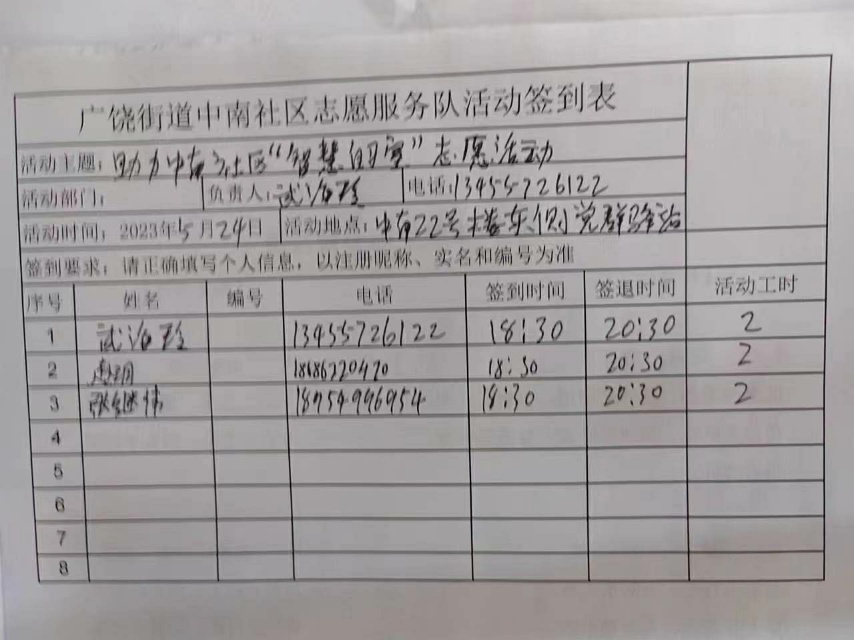 广饶街道中南社区志愿服务队活动签到表
活动主题：助力中南社区“智慧的宝”志愿活动
活动部门： 负责人：武治玲 电话：13455726122
活动时间：2023年5月24日 活动地点：中南22号楼东侧党群驿站
签到要求：请正确填写个人信息，以注册昵称、实名和编号为准
序号 姓名 编号 电话 签到时间 签退时间 活动工时
1 13455726122 18:30 20:30 2
2 18686220470 18:30 20:30 2
3 张继伟 18954996954 18:30 20:30 2
4
5
6
7
8